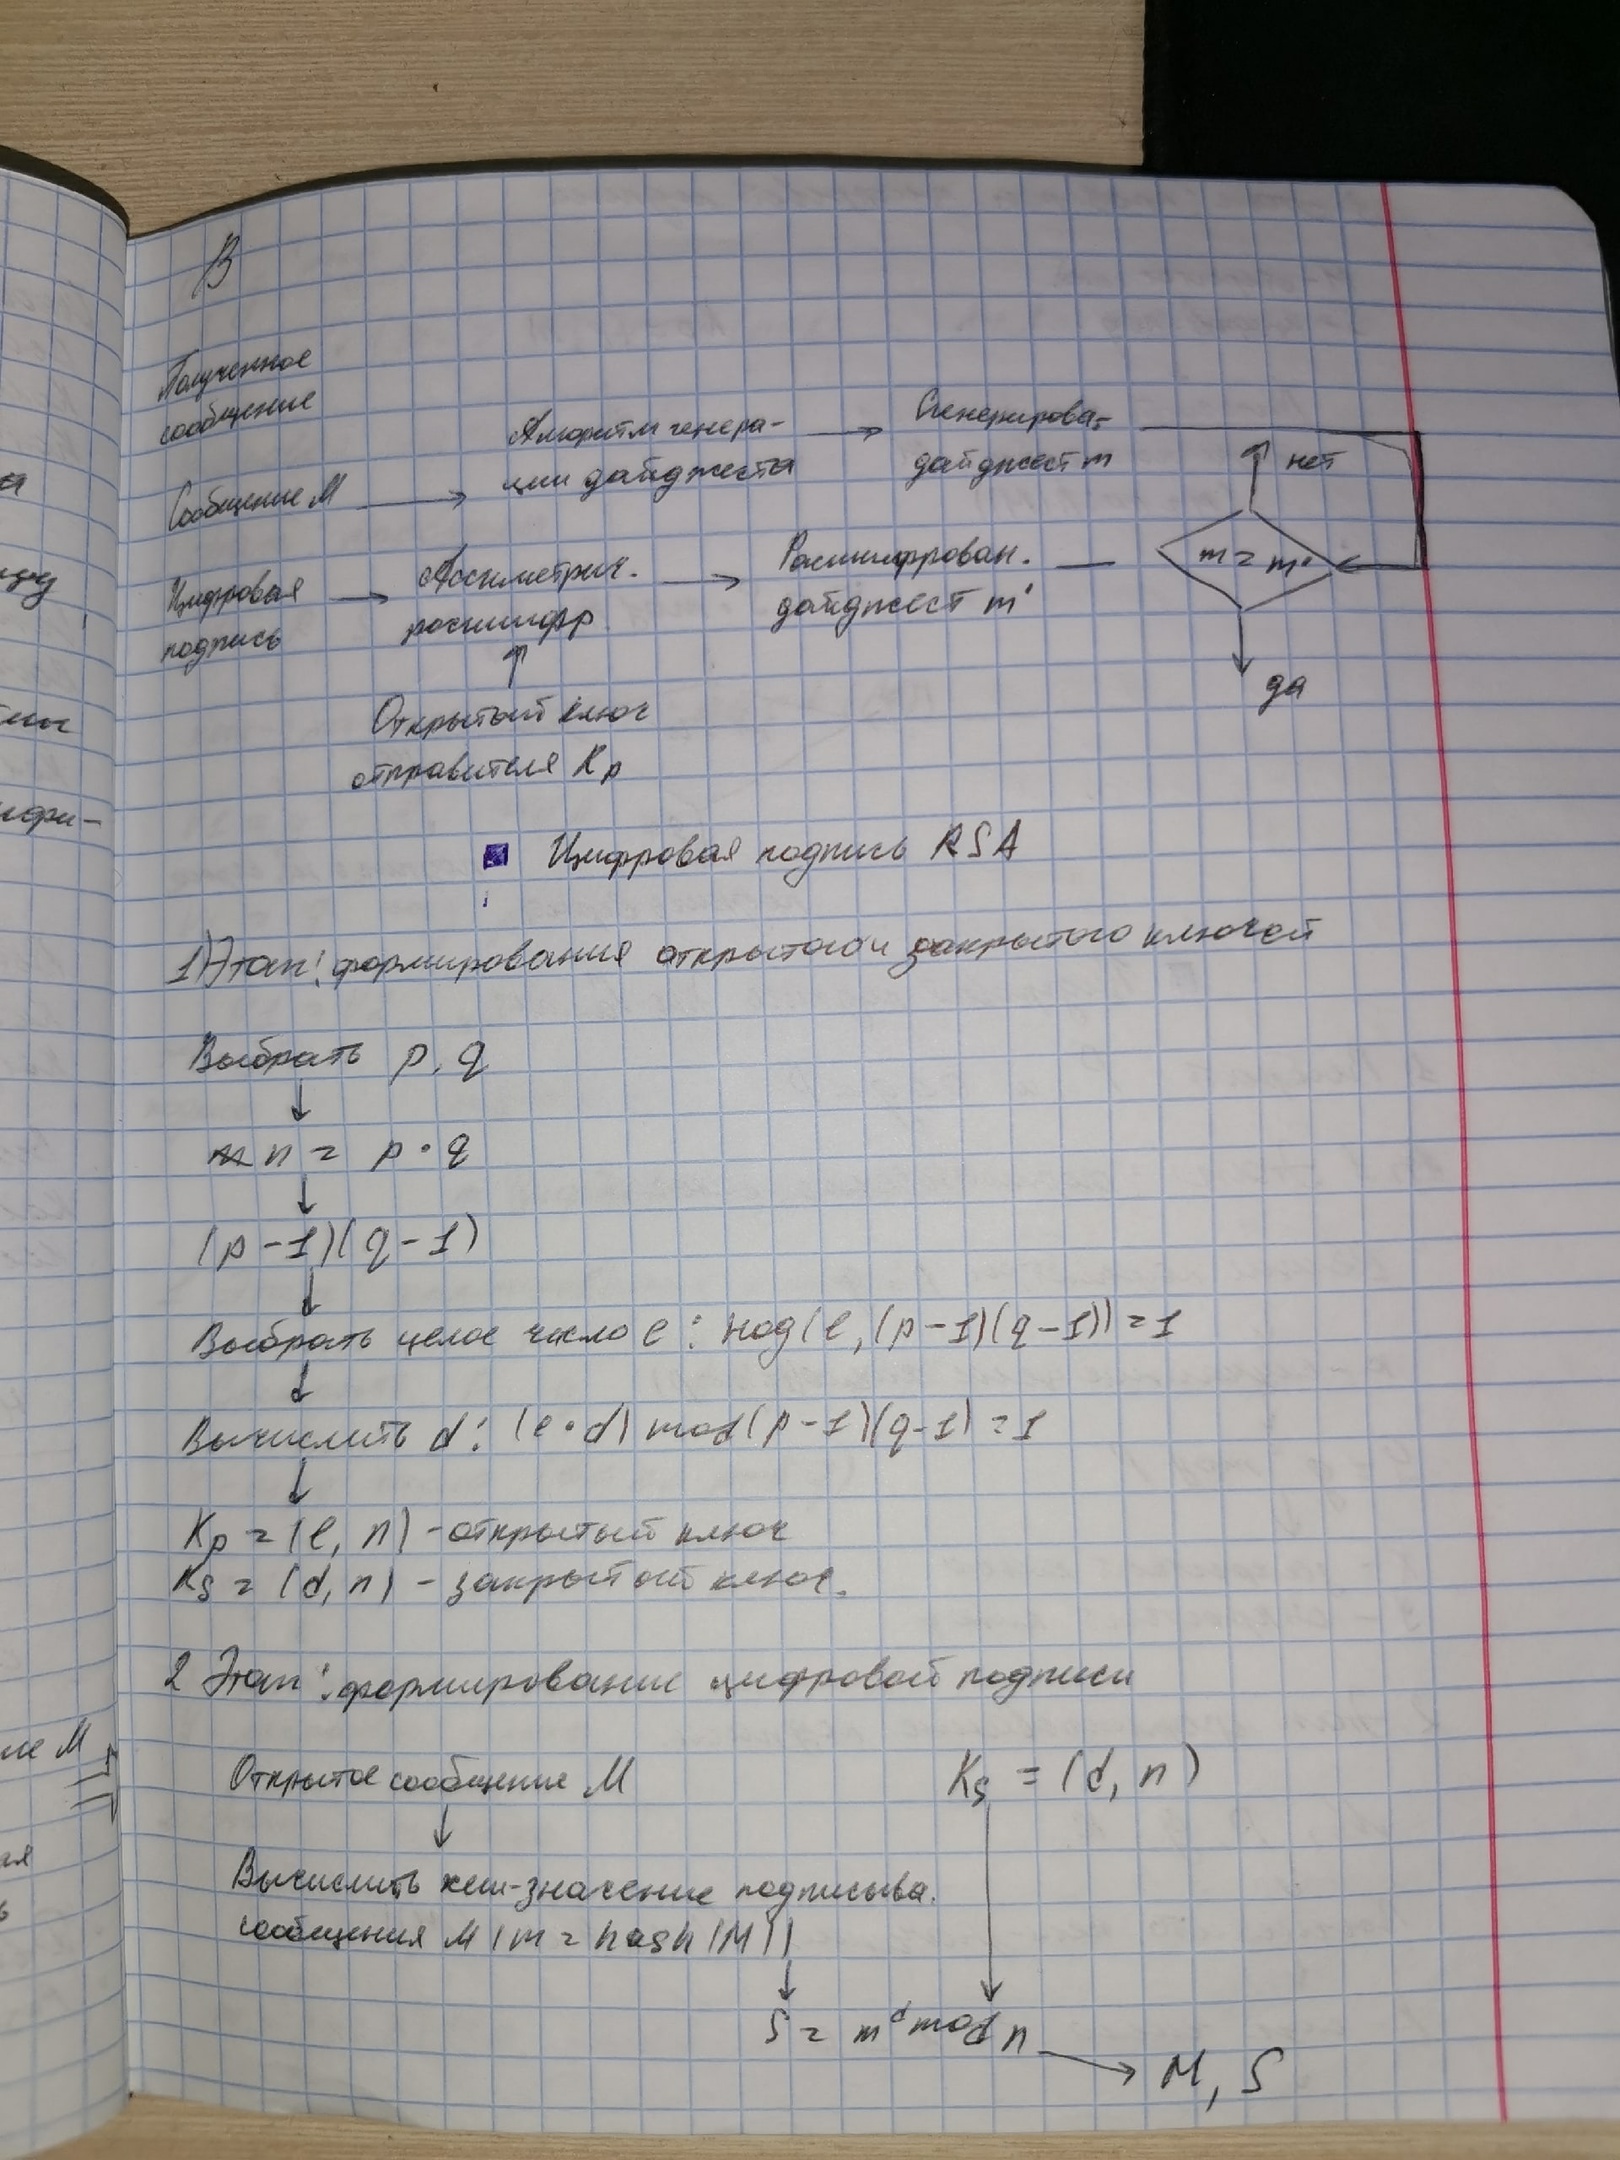 В
Полученное
сообщение
Сообщение М
Алгоритм генера-
ции дайджеста
Сгенерирова-
дайджест m
нет
Цифровая
подпись
Ассиметрич.
расшифр
Расшифрован.
дайджест m'
m = m'
да
Открытый ключ
отправителя Kp
Цифровая подпись RSA
1) Этап: формирования открытого и закрытого ключей
Выбрать p, q
n = p · q
(p-1)(q-1)
Выбрать целое число e: НОД(e, (p-1)(q-1)) = 1
Вычислить d: (e·d) mod (p-1)(q-1) = 1
Kp = (e, n) - открытый ключ
Ks = (d, n) - закрытый ключ.
2 Этап: формирование цифровой подписи
Открытое сообщение М
Ks = (d, n)
Вычислить хеш-значение подписыва.
сообщения М (m = hash(M))
S = m^d mod n
M, S